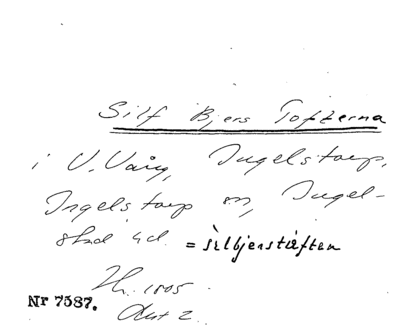 Silf Bjers Tofterna
i V. Vång, Ingelstorp,
Ingelstorp sn, Ingel-
stad hd. = silbjerstäften
1805
Nr 7587. Akt 2